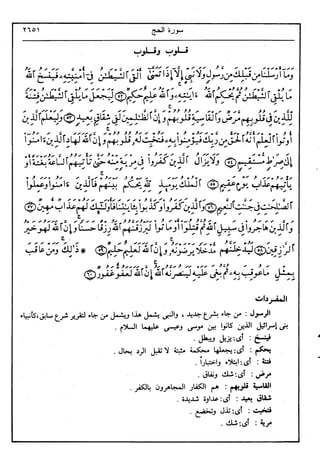 ٢٦٥١
سورة الحج
قلوب وقلوب
وَمَآ أَرْسَلْنَا مِن قَبْلِكَ مِن رَّسُولٍ وَلَا نَبِىٍّ إِلَّآ إِذَا تَمَنَّىٰٓ أَلْقَى ٱلشَّيْطَٰنُ فِىٓ أُمْنِيَّتِهِۦ فَيَنسَخُ ٱللَّهُ
مَا يُلْقِى ٱلشَّيْطَٰنُ ثُمَّ يُحْكِمُ ٱللَّهُ ءَايَٰتِهِۦ وَٱللَّهُ عَلِيمٌ حَكِيمٌ ﴿٥٢﴾ لِّيَجْعَلَ مَا يُلْقِى ٱلشَّيْطَٰنُ فِتْنَةً
لِّلَّذِينَ فِى قُلُوبِهِم مَّرَضٌ وَٱلْقَاسِيَةِ قُلُوبُهُمْ وَإِنَّ ٱلظَّٰلِمِينَ لَفِى شِقَاقٍۭ بَعِيدٍ ﴿٥٣﴾ وَلِيَعْلَمَ ٱلَّذِينَ
أُوتُوا۟ ٱلْعِلْمَ أَنَّهُ ٱلْحَقُّ مِن رَّبِّكَ فَيُؤْمِنُوا۟ بِهِۦ فَتُخْبِتَ لَهُۥ قُلُوبُهُمْ وَإِنَّ ٱللَّهَ لَهَادِ ٱلَّذِينَ ءَامَنُوٓا۟
إِلَىٰ صِرَٰطٍ مُّسْتَقِيمٍ ﴿٥٤﴾ وَلَا يَزَالُ ٱلَّذِينَ كَفَرُوا۟ فِى مِرْيَةٍ مِّنْهُ حَتَّىٰ تَأْتِيَهُمُ ٱلسَّاعَةُ بَغْتَةً أَوْ
يَأْتِيَهُمْ عَذَابُ يَوْمٍ عَقِيمٍ ﴿٥٥﴾ ٱلْمُلْكُ يَوْمَئِذٍ لِّلَّهِ يَحْكُمُ بَيْنَهُمْ فَٱلَّذِينَ ءَامَنُوا۟ وَعَمِلُوا۟
ٱلصَّٰلِحَٰتِ فِى جَنَّٰتِ ٱلنَّعِيمِ ﴿٥٦﴾ وَٱلَّذِينَ كَفَرُوا۟ وَكَذَّبُوا۟ بِـَٔايَٰتِنَا فَأُو۟لَٰٓئِكَ لَهُمْ عَذَابٌ مُّهِينٌ ﴿٥٧﴾
وَٱلَّذِينَ هَاجَرُوا۟ فِى سَبِيلِ ٱللَّهِ ثُمَّ قُتِلُوٓا۟ أَوْ مَاتُوا۟ لَيَرْزُقَنَّهُمُ ٱللَّهُ رِزْقًا حَسَنًا وَإِنَّ ٱللَّهَ لَهُوَ خَيْرُ
ٱلرَّٰزِقِينَ ﴿٥٨﴾ لَيُدْخِلَنَّهُم مُّدْخَلًا يَرْضَوْنَهُۥ وَإِنَّ ٱللَّهَ لَعَلِيمٌ حَلِيمٌ ﴿٥٩﴾ ۞ ذَٰلِكَ وَمَنْ عَاقَبَ
بِمِثْلِ مَا عُوقِبَ بِهِۦ ثُمَّ بُغِىَ عَلَيْهِ لَيَنصُرَنَّهُ ٱللَّهُ إِنَّ ٱللَّهَ لَعَفُوٌّ غَفُورٌ ﴿٦٠﴾
المفردات
الرسول : من جاء بشرع جديد ، والنبى يشمل هذا ويشمل من جاء لتقرير شرع سابق ، كأنبياء
بنى إسرائيل الذين كانوا بين موسى وعيسى عليهما السلام .
فينسخ : أى : يزيل ويبطل .
يحكم : أى : يجعلها محكمة مثبتة لا تقبل الرد بحال .
فتنة : أى : ابتلاء واختباراً .
مرض : أى : شك ونفاق .
القاسية قلوبهم : هم الكفار المجاهرون بالكفر .
شقاق بعيد : أى : عداوة شديدة .
فتخبت : أى : تذل وتخضع .
مرية : أى : شك .